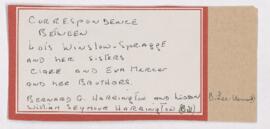 CORRESPONDENCE
BETWEEN
LOIS WINSLOW-SPRAGGE
AND HER SISTERS
CLARE AND EVA MERCER
AND HER BROTHERS.
BERNARD G. HARRINGTON AND
WILLIAM SEYMOUR HARRINGTON (Bill)